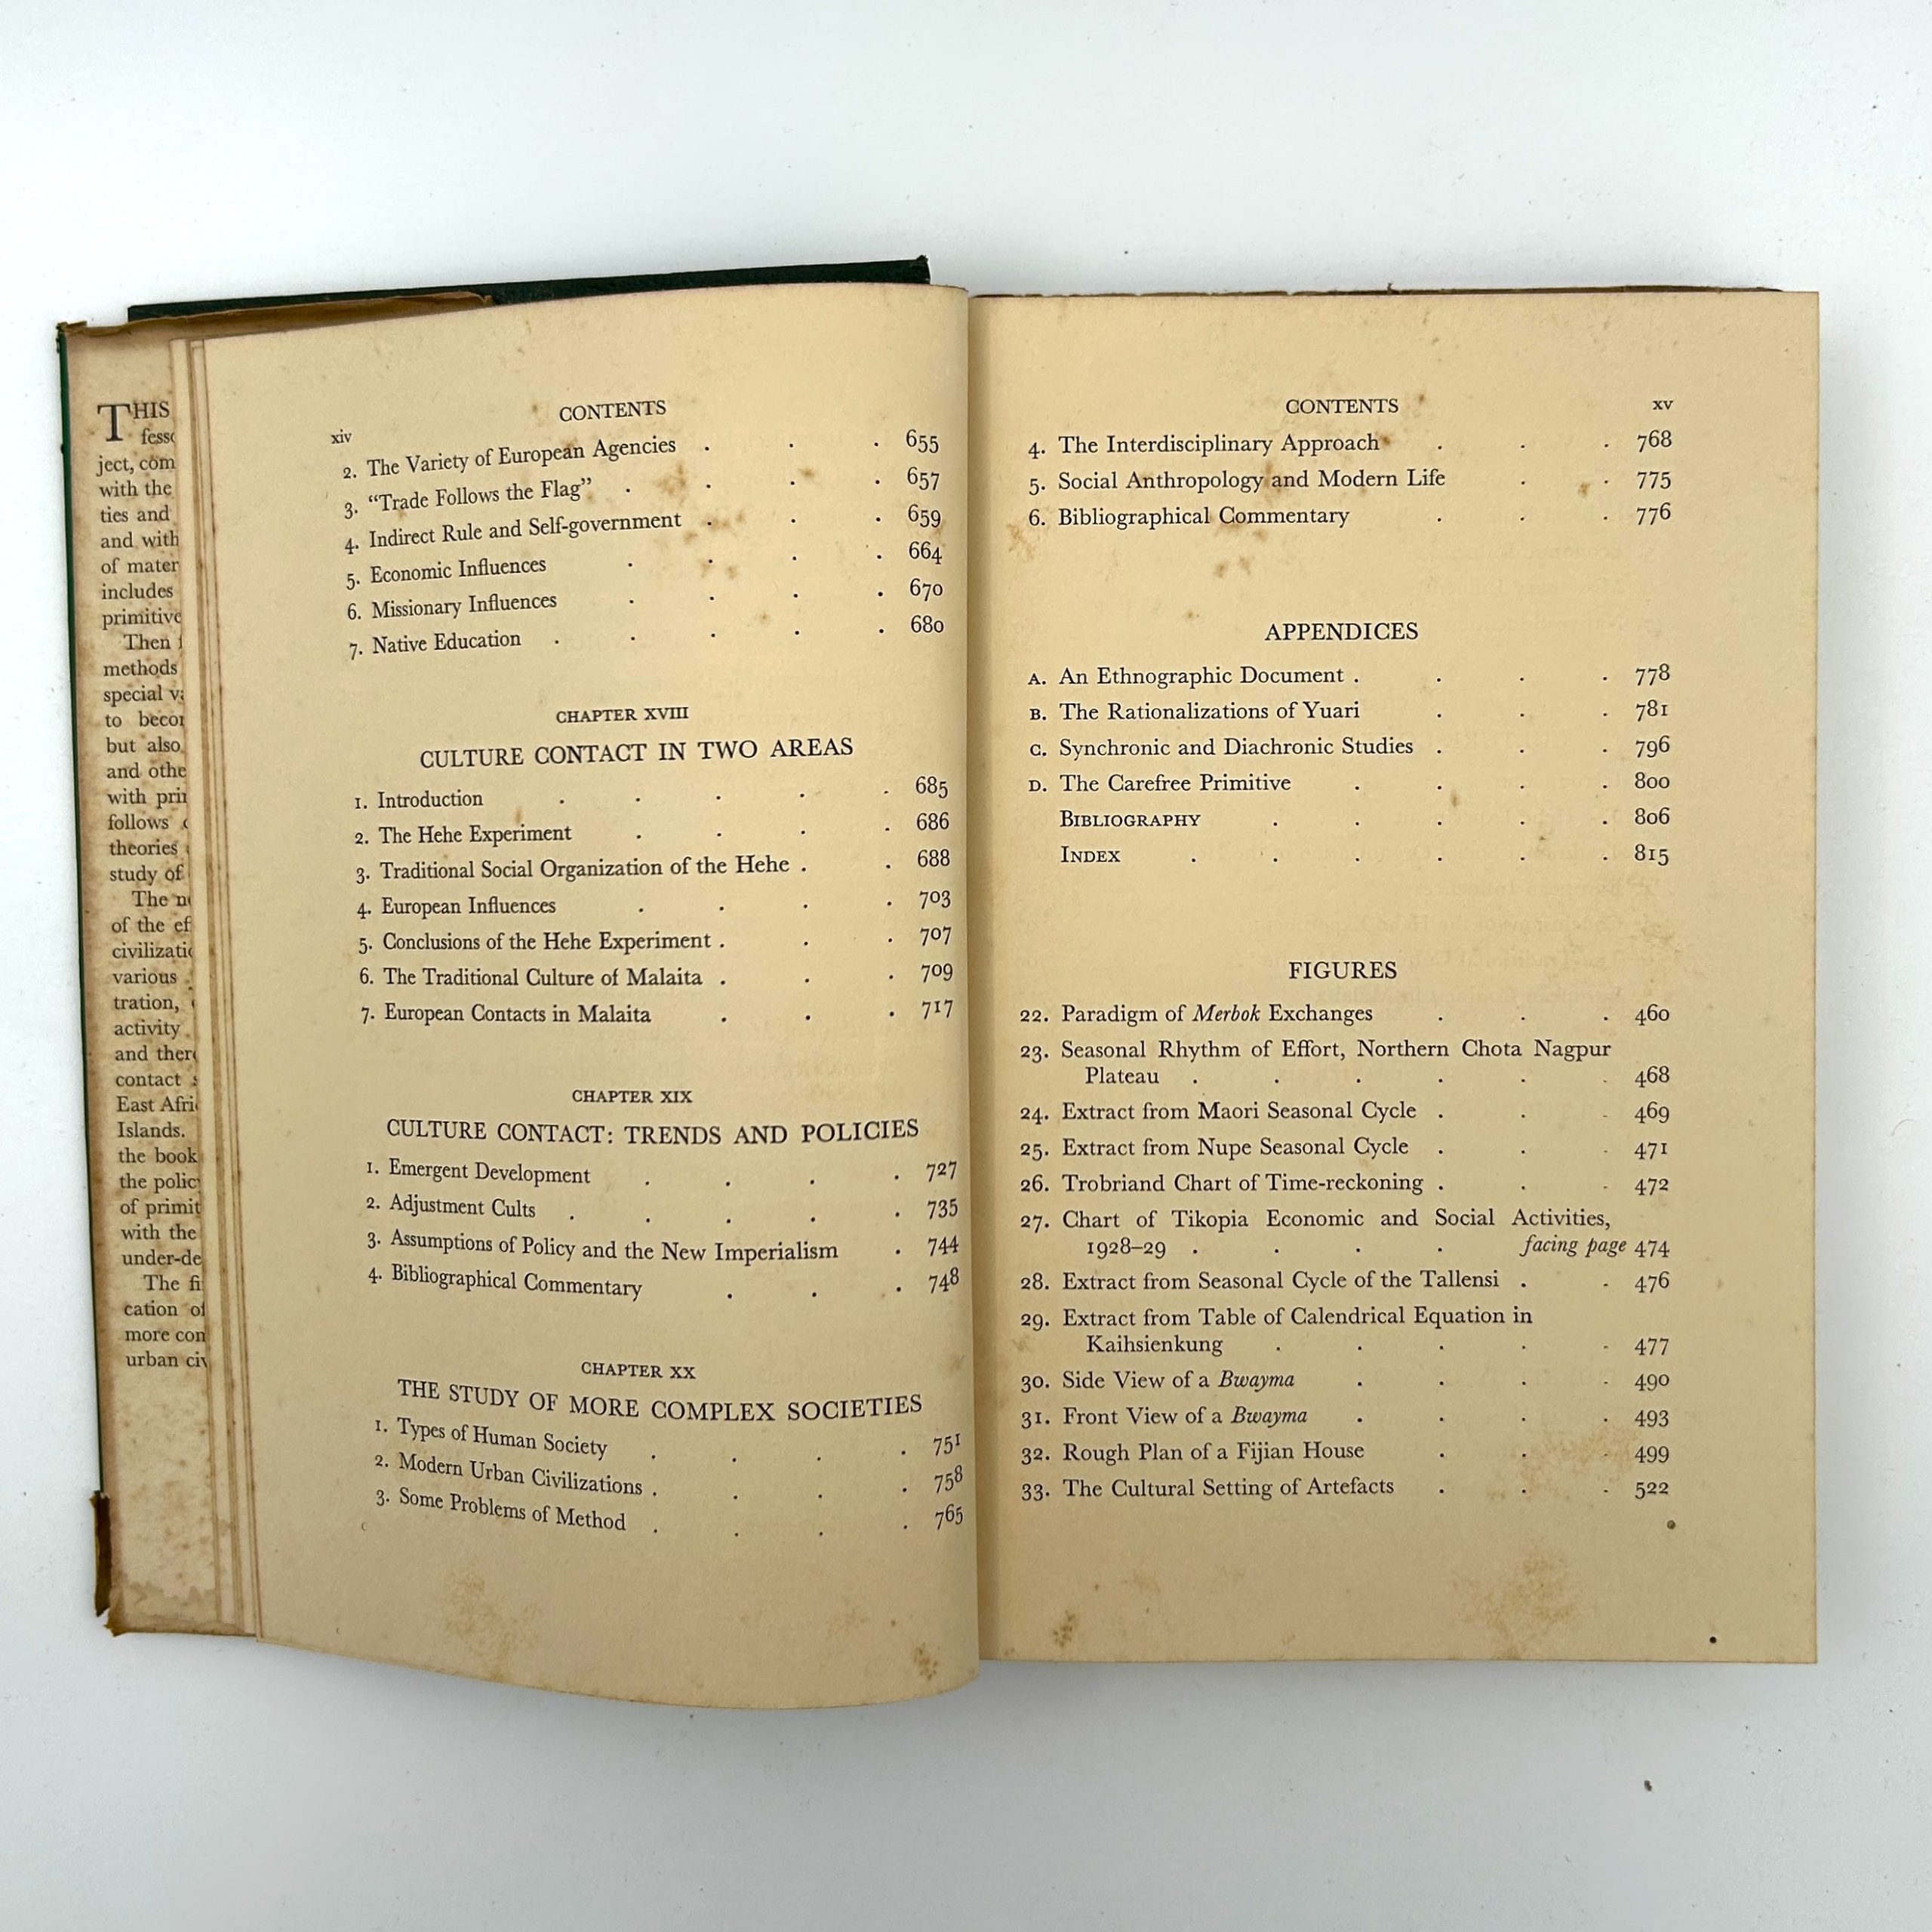 THIS
fess
ject, com
with the
ties and
and with
of mater
includes
primitive
Then
methods
special
to becor
but also
and othe
with prin
follows
theories
study of
The
of the ef
civilizati
various
tration,
activity
and ther
contact
East Afri
Islands.
the book
the polic
of primit
with the
under-de
The fi
cation of
more con
urban civ
CONTENTS
xiv
2. The Variety of European Agencies . . . 655
3. “Trade Follows the Flag” . . . . 657
4. Indirect Rule and Self-government . . . 659
5. Economic Influences . . . . 664
6. Missionary Influences . . . . 670
7. Native Education . . . . . 680
CHAPTER XVIII
CULTURE CONTACT IN TWO AREAS
1. Introduction . . . . . 685
2. The Hehe Experiment . . . . 686
3. Traditional Social Organization of the Hehe . . 688
4. European Influences . . . . 703
5. Conclusions of the Hehe Experiment . . . 707
6. The Traditional Culture of Malaita . . . 709
7. European Contacts in Malaita . . . 717
CHAPTER XIX
CULTURE CONTACT: TRENDS AND POLICIES
1. Emergent Development . . . . 727
2. Adjustment Cults . . . . . 735
3. Assumptions of Policy and the New Imperialism . 744
4. Bibliographical Commentary . . . 748
CHAPTER XX
THE STUDY OF MORE COMPLEX SOCIETIES
1. Types of Human Society . . . . 751
2. Modern Urban Civilizations . . . . 758
3. Some Problems of Method . . . . 765
CONTENTS xv
4. The Interdisciplinary Approach . . . 768
5. Social Anthropology and Modern Life . . 775
6. Bibliographical Commentary . . . 776
APPENDICES
A. An Ethnographic Document . . . . 778
B. The Rationalizations of Yuari . . . 781
C. Synchronic and Diachronic Studies . . . 796
D. The Carefree Primitive . . . . 800
BIBLIOGRAPHY . . . . . 806
INDEX . . . . . . 815
FIGURES
22. Paradigm of Merbok Exchanges . . . 460
23. Seasonal Rhythm of Effort, Northern Chota Nagpur
Plateau . . . . . . 468
24. Extract from Maori Seasonal Cycle . . . 469
25. Extract from Nupe Seasonal Cycle . . . 471
26. Trobriand Chart of Time-reckoning . . . 472
27. Chart of Tikopia Economic and Social Activities,
1928–29 . . . . facing page 474
28. Extract from Seasonal Cycle of the Tallensi . . 476
29. Extract from Table of Calendrical Equation in
Kaihsienkung . . . . . 477
30. Side View of a Bwayma . . . . 490
31. Front View of a Bwayma . . . . 493
32. Rough Plan of a Fijian House . . . 499
33. The Cultural Setting of Artefacts . . . 522